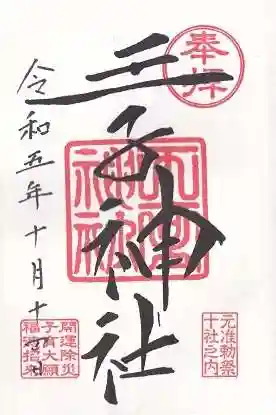 奉拝
王子神社
令和五年十月十四日
元准勅祭
十社之内
開運除災
子育大願
福徳招来